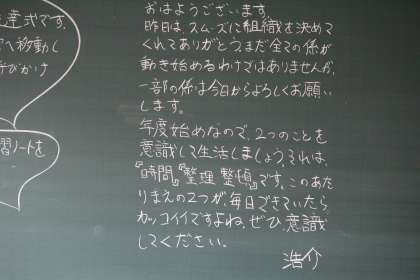 達式です。
へ移動し
習ノートを
おはようございます。
昨日は、スムーズに組織を決めて
くれてありがとう。まだ全ての係が
動き始めるわけではありませんが、
一部の係は今日からよろしくお願い
します。
年度始めなので、2つのことを
意識して生活しましょう。それは、
『時間』『整理整頓』です。このあた
りまえの2つが毎日できていたら
カッコイイですよね。ぜひ、意識
してください。
浩介